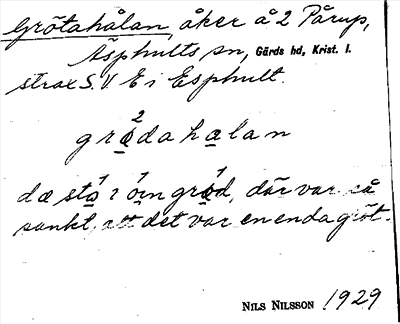 Grötahålan, åker å 2 Pårup,
Äsphults sn, Gärds hd, Krist. l.
strax S.V. E i Esphult.
2
grødahalan
dæ stå i öin grød, där var så
sankt, att det var en enda gröt.
NILS NILSSON 1929